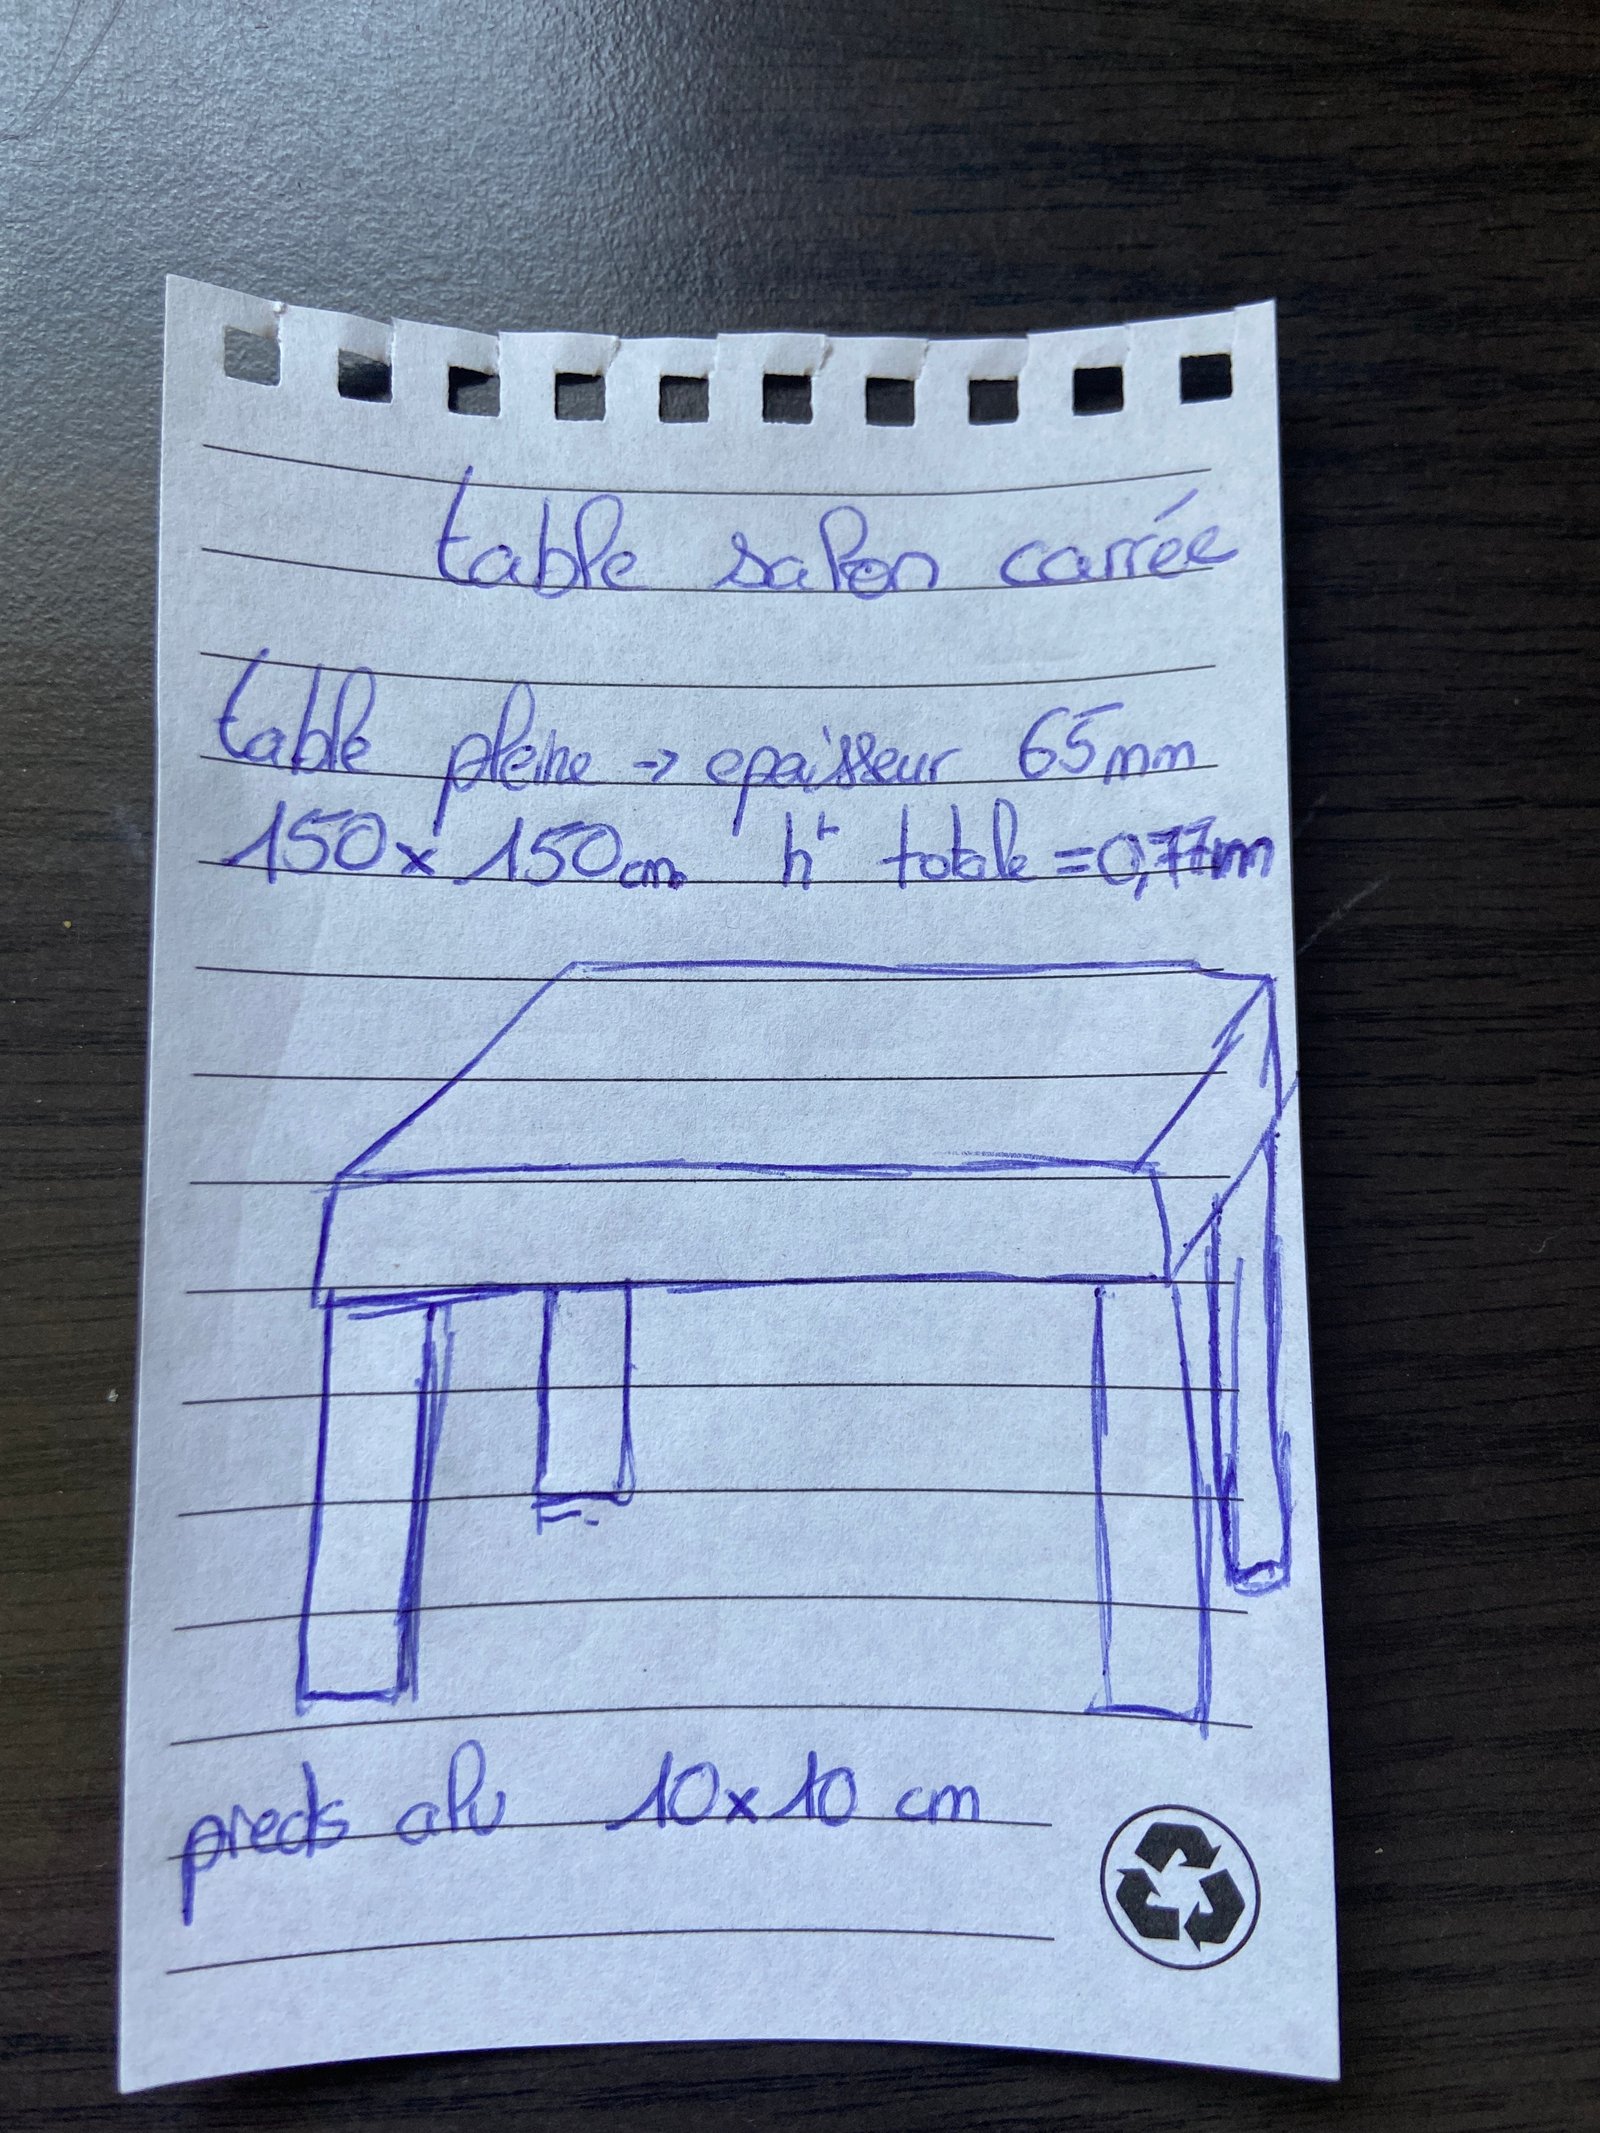 table salon carrée
table pleine → epaisseur 65mm
150x150cm ht totale = 0,77m
pieds alu 10x10 cm